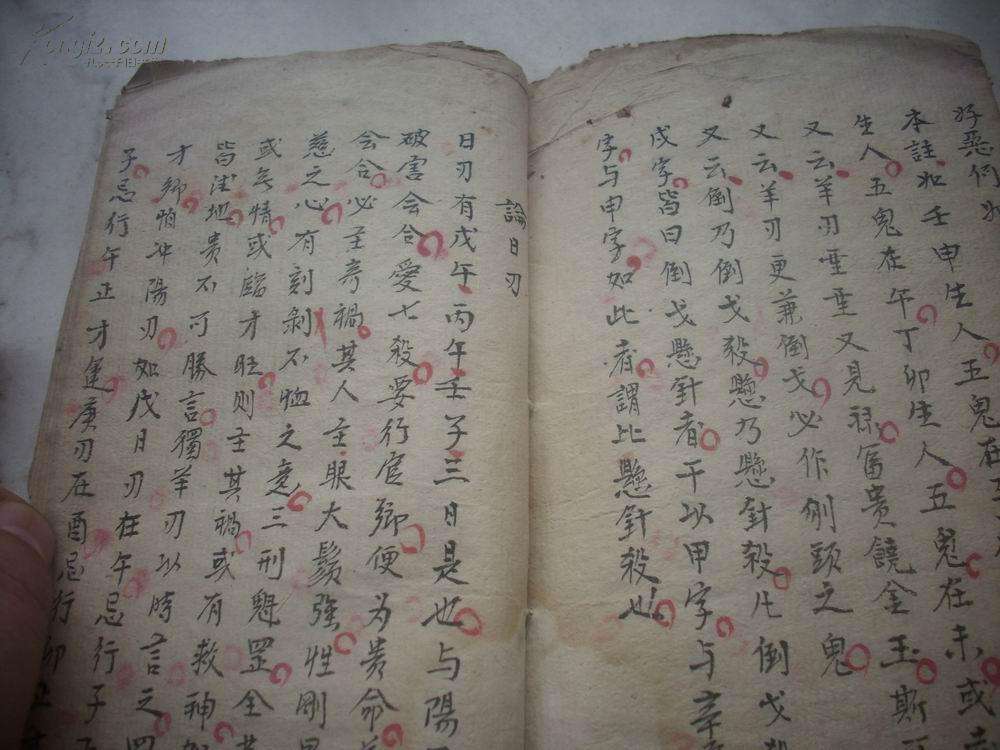 好惡何如
本註如壬申生人五鬼在
生人五鬼在午丁卯生人五鬼在未或
又云羊刃重重又見祿富貴饒金玉斯
又云羊刃更兼倒戈必作倒頭之鬼
又云倒乃倒戈殺懸乃懸針殺凡倒戈
戊字皆曰倒戈懸針者干以甲字与辛
字与申字如此者謂比懸針殺也
論日刃
日刃有戊午丙午壬子三日是也与陽
破害会合愛七殺要行官鄉便为貴命
会合必主竒禍其人主眼大鬚強性剛
慈之心有刻剝不恤之意三刑魁罡全
或无情或臨才旺则主其禍或有救神
皆注地貴不可勝言獨羊刃以時言之
才鄉怕冲陽刃如戊日刃在午忌行子
子忌行午正才運庚刃在酉忌行卯正
kongfz.com